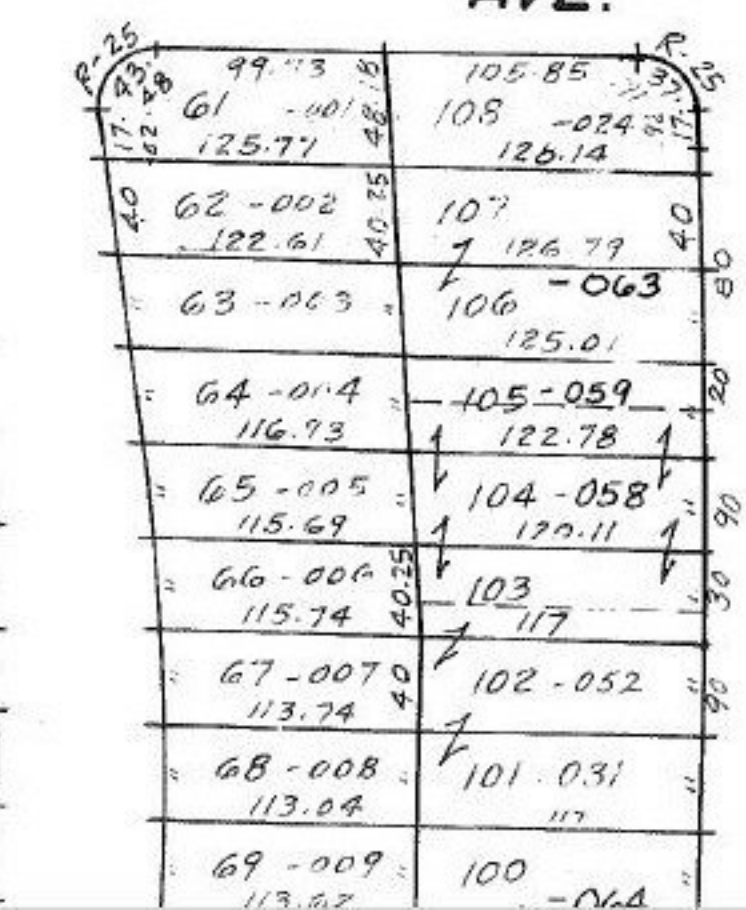 AVE.
R-25
43.48
17.
62
99.73
61 -001
125.77
48.18
105.85
108 -024
126.14
R.25
37.
17.
40
62 -002
122.61
40.25
107
126.79
40
63 -003
"
106 -063
125.01
80
"
64 -004
116.93
"
105 -059
122.78
20
"
65 -005
115.69
"
104 -058
120.11
"
90
"
66 -006
115.74
40.25
103
117
30
"
67 -007
113.74
40
102 -052
"
90
"
68 -008
113.04
"
101 031
117
"
"
69 -009
"
100
-064
"